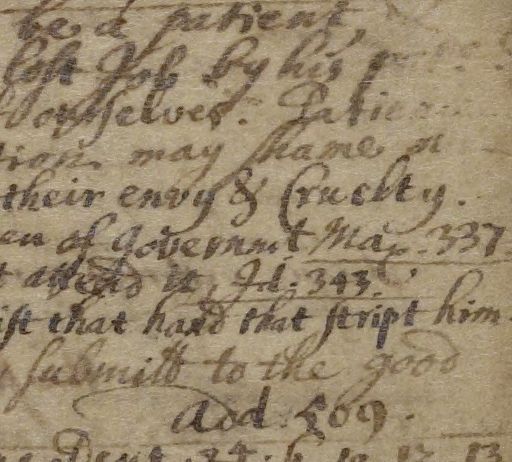 be a patient,
lost Job by his
ourselves. Patien
tion may shame
their envy & Cruelty.
en of Governmt. Max. 337
t attend it, Id. 343.
ist that hand that stript him.
submitt to the good
Add. 509.
Deut. 34. 6. 10. 12. 13